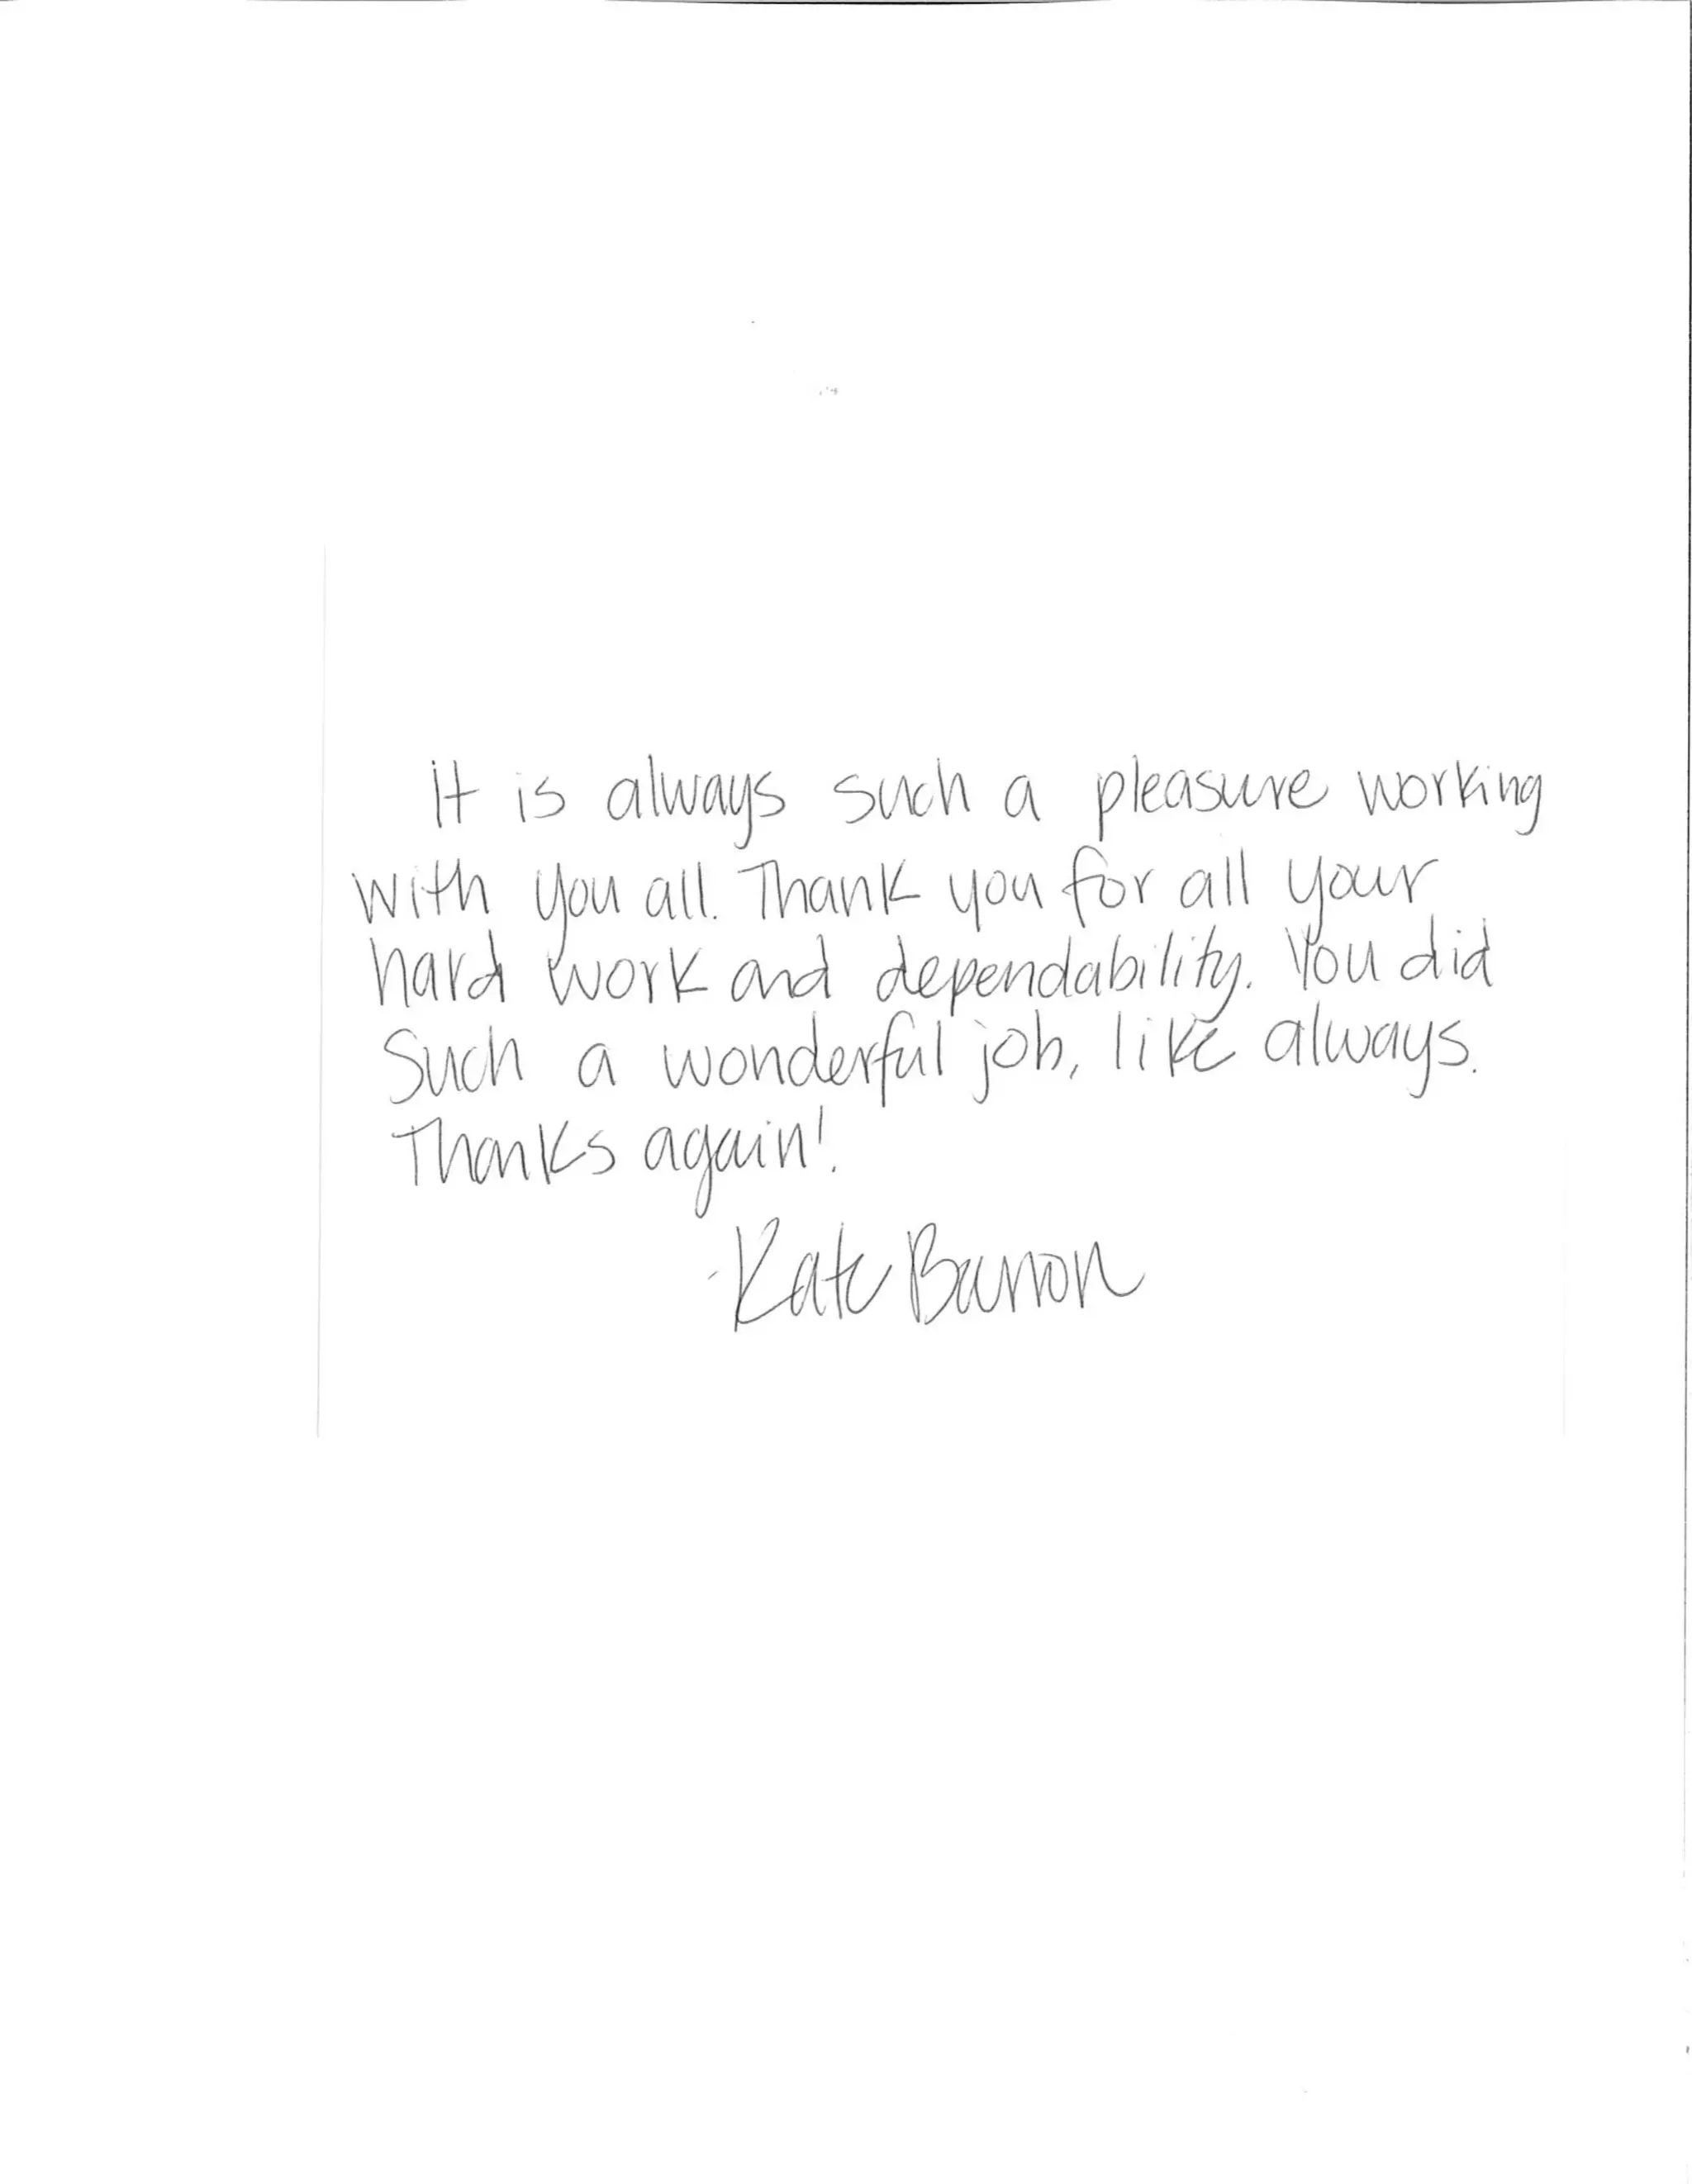 It is always such a pleasure working
with you all. Thank you for all your
hard work and dependability. You did
such a wonderful job, like always.
Thanks again!
-Kate Barron